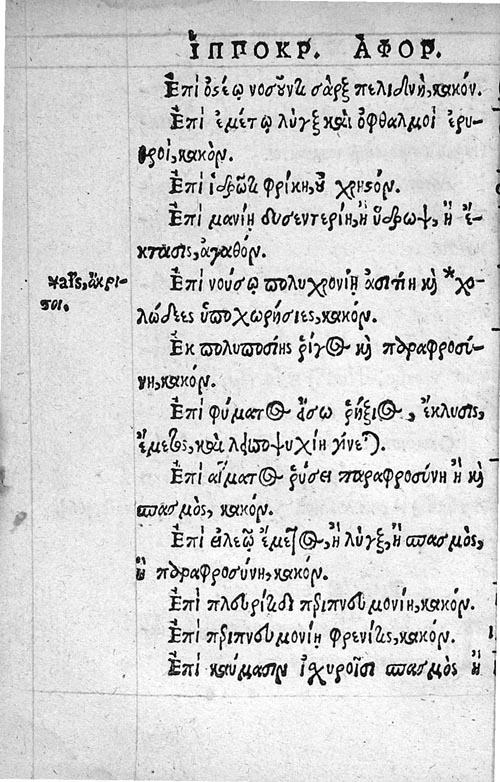 ἹΠΠΟΚΡ. ἈΦΟΡ.
Ἐπὶ ὀστέῳ νοσοῦντι σὰρξ πελιδνὴ, κακόν.
Ἐπὶ ἐμέτῳ λὺγξ καὶ ὀφθαλμοὶ ἐρυ-
θροὶ, κακὸν.
Ἐπὶ ἱδρῶτι φρίκη, οὐ χρηστόν.
Ἐπὶ μανίῃ δυσεντερίη, ἢ ὕδρωψ, ἢ ἔκ-
κτασις, ἀγαθόν.
Ἐπὶ νούσῳ πολυχρονίῃ ἀσιτίη καὶ *χο-
λώδεες ὑποχωρήσιες, κακόν.
*αἱ, ἄκρι-
τοι.
Ἐκ πολυποσίης ῥίγος καὶ παραφροσύ-
νη, κακόν.
Ἐπὶ φύματος ἔσω ῥήξιος, ἔκλυσις,
ἔμετος, καὶ λειποψυχίη γίνεται.
Ἐπὶ αἵματος ῥύσει παραφροσύνη ἢ καὶ
σπασμὸς, κακόν.
Ἐπὶ εἰλεῷ ἔμετος, ἢ λὺγξ, ἢ σπασμὸς,
ἢ παραφροσύνη, κακόν.
Ἐπὶ πλευρίτιδι περιπνευμονίη, κακόν.
Ἐπὶ περιπνευμονίῃ φρενίτις, κακόν.
Ἐπὶ καύμασιν ἰσχυροῖσι σπασμὸς ἢ